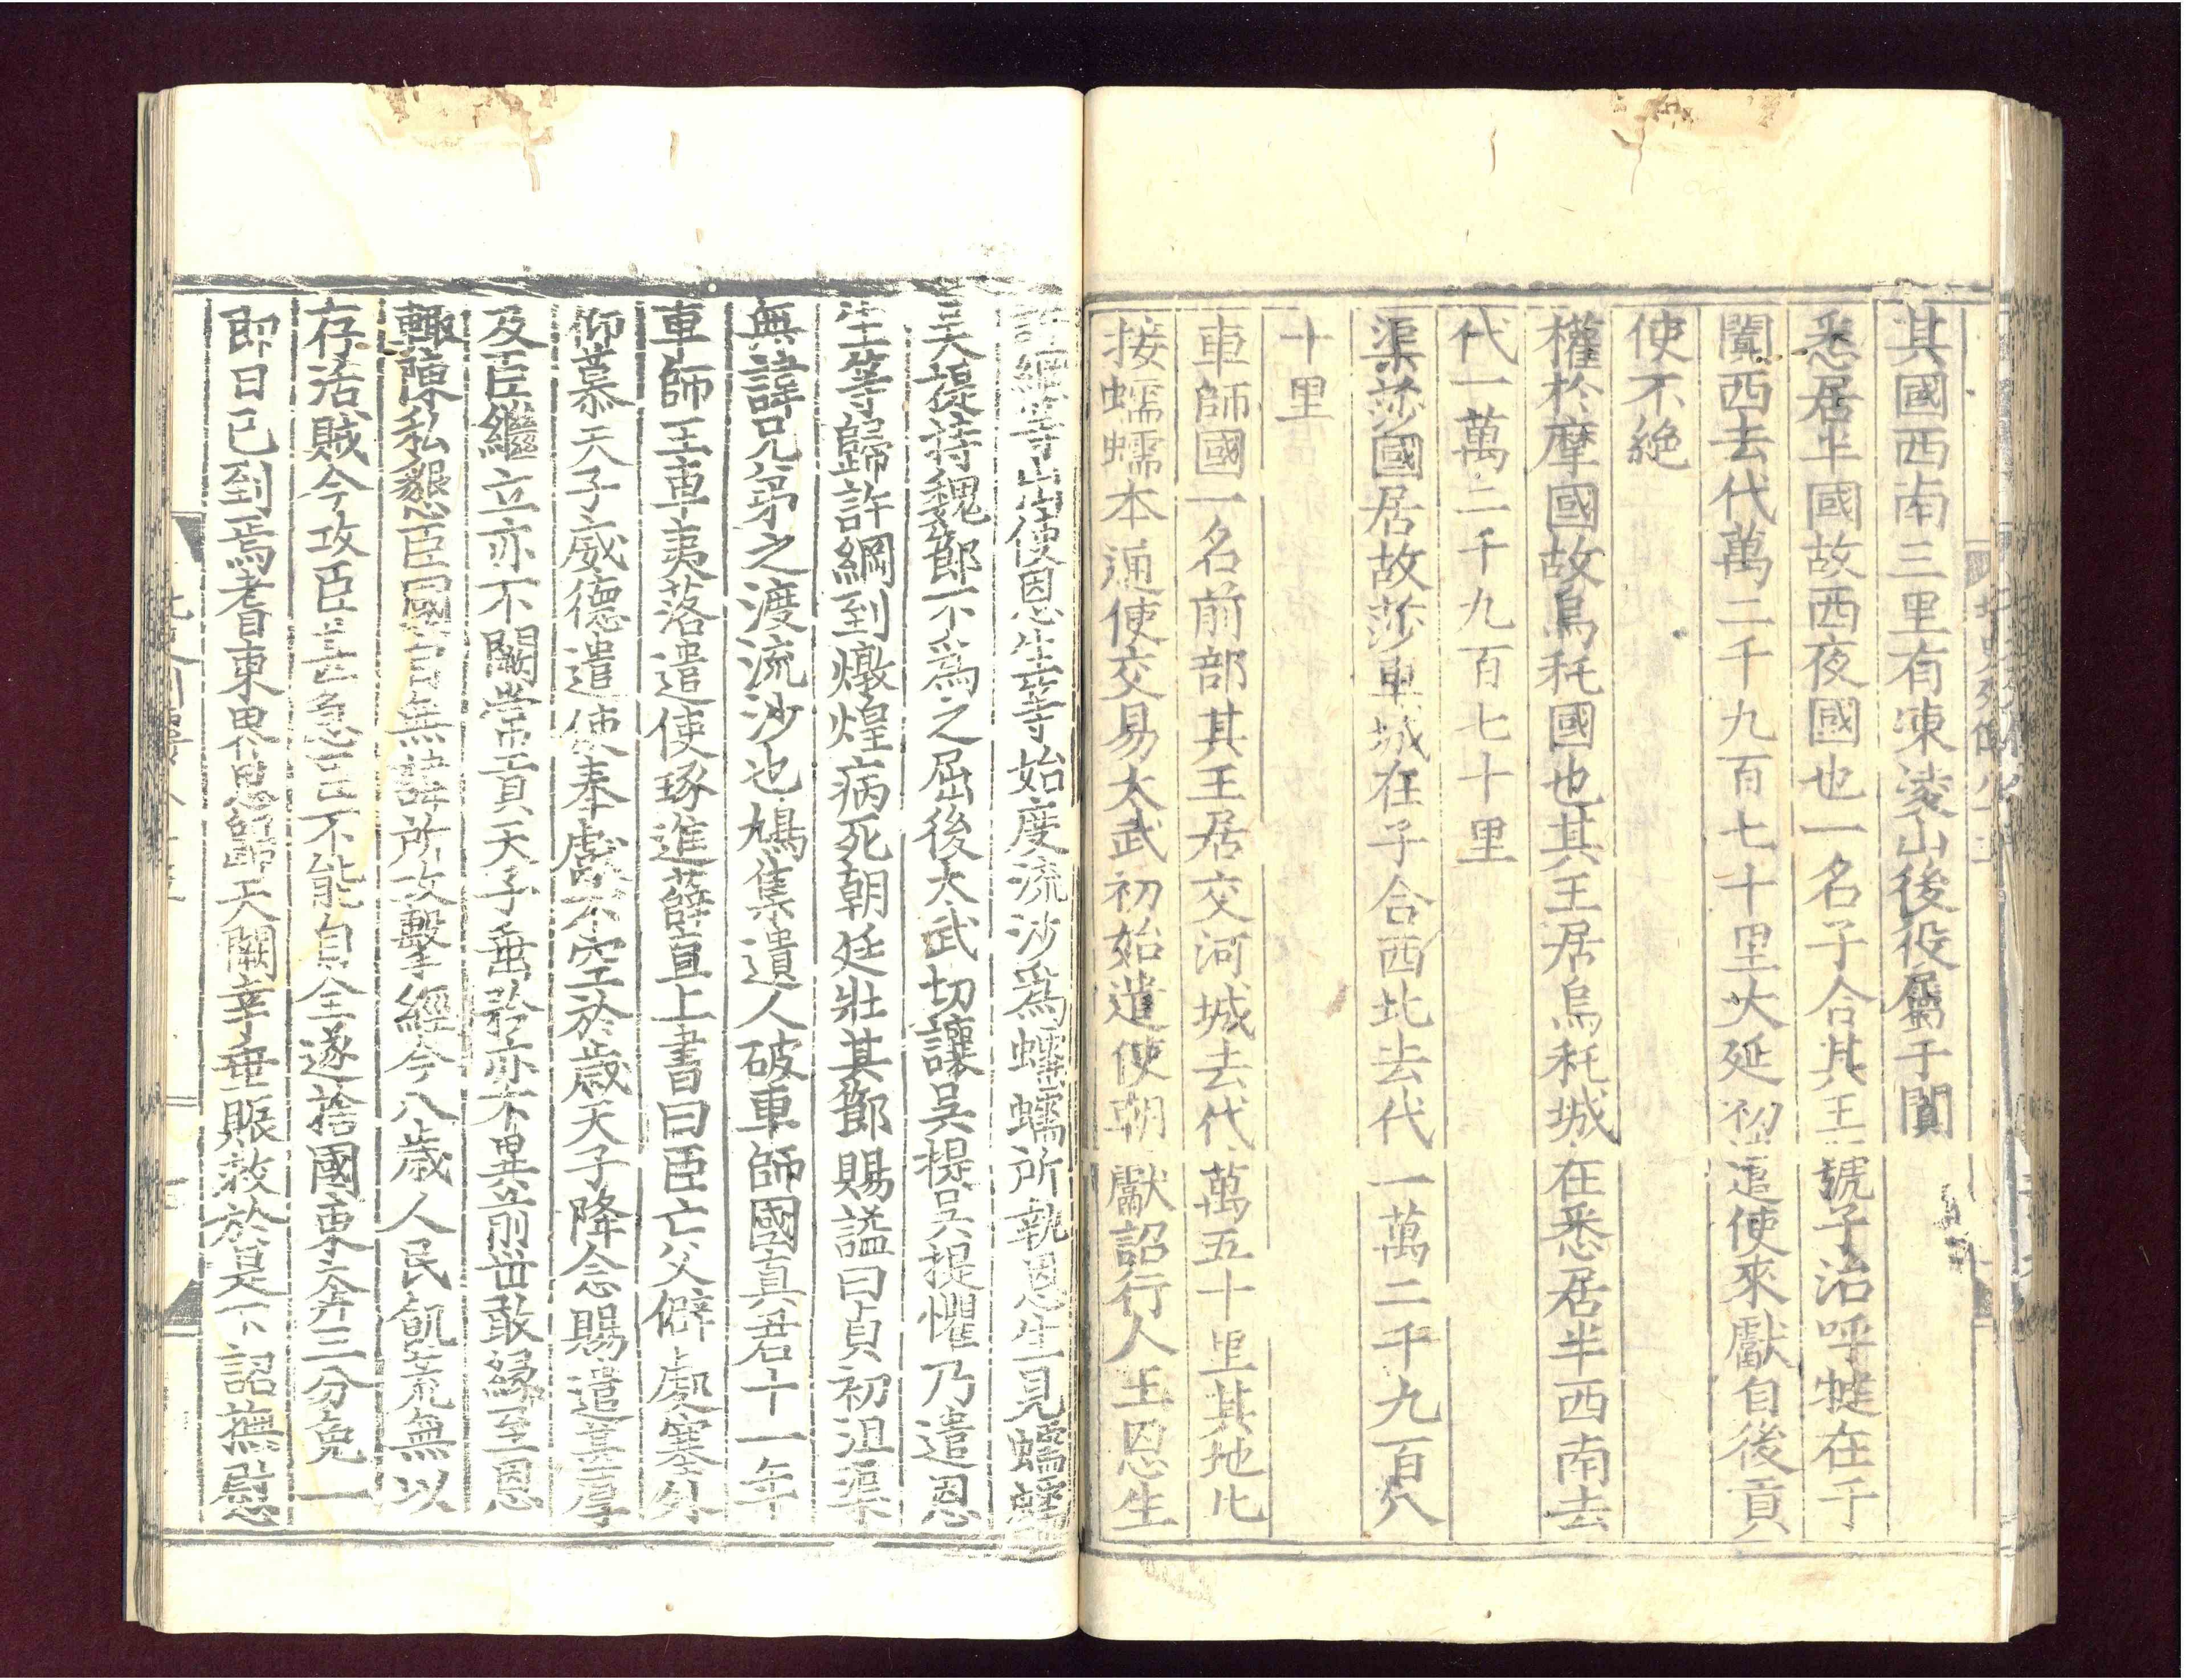 其國西南三里有凍凌山後役屬于闐
悉居半國故西夜國也一名子合其王號子治呼犍在于
闐西去代萬二千九百七十里太延初遣使來獻自後貢
使不絶
權於摩國故烏秅國也其王居烏秅城在悉居半西南去
代一萬二千九百七十里
渠莎國居故莎車城在子合西北去代一萬二千九百八
十里
車師國一名前部其王居交河城去代萬五十里其地北
接蠕蠕本通使交易太武初始遣使朝獻詔行人王恩生
許綱等出使恩生等始度流沙爲蠕蠕所執恩生見蠕蠕
吴提持魏節不爲之屈後太武切讓吴提吴提懼乃遣恩
生等歸許綱到燉煌病死朝廷壯其節賜謚曰貞初沮渠
無諱兄弟之渡流沙也鳩集遺人破車師國真君十一年
車師王車夷落遣使琢進薛直上書曰臣亡父僻處塞外
仰慕天子威德遣使奉獻不空於歲天子降念賜遺甚厚
及臣繼立亦不闕常貢天子垂矜亦不異前世敢緣至恩
輒陳私懇臣國自無諱所攻擊經今八歲人民飢荒無以
存活賊今攻臣甚急臣不能自全遂捨國東奔三分免一
即日已到焉耆東界思歸天闕幸垂賑救於是下詔撫慰